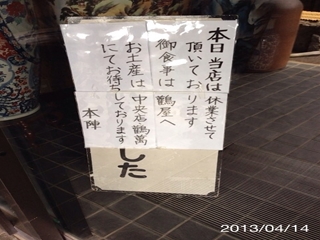 本日当店は休業させて
頂いております
御食事は鶴屋へ
お土産は中央店鶴萬
にてお待ちしております
本陣
した
2013/04/14